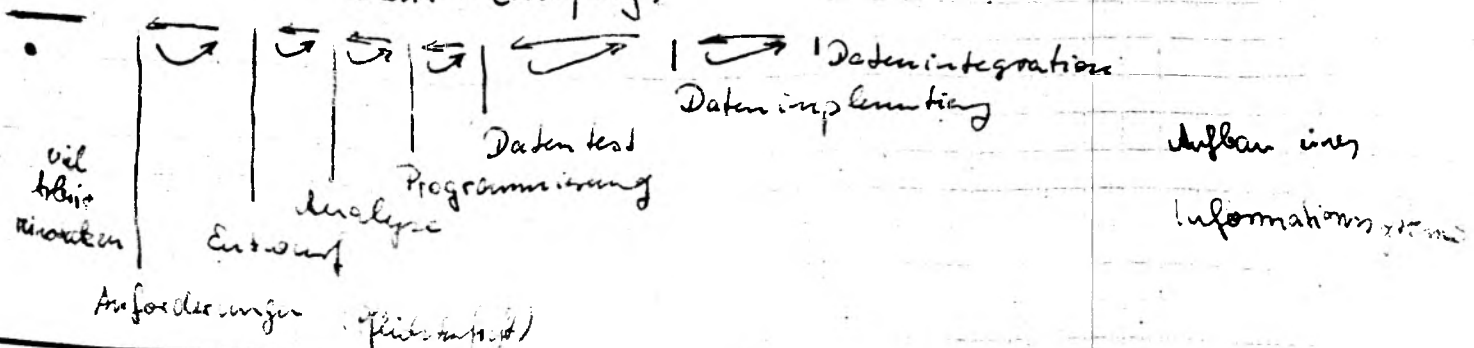 Datenintegration
Datenimplementierung
Datentest
Programmierung
Analyse
Entwurf
Anforderungen
viel
Aufbau eines
Informationssystems